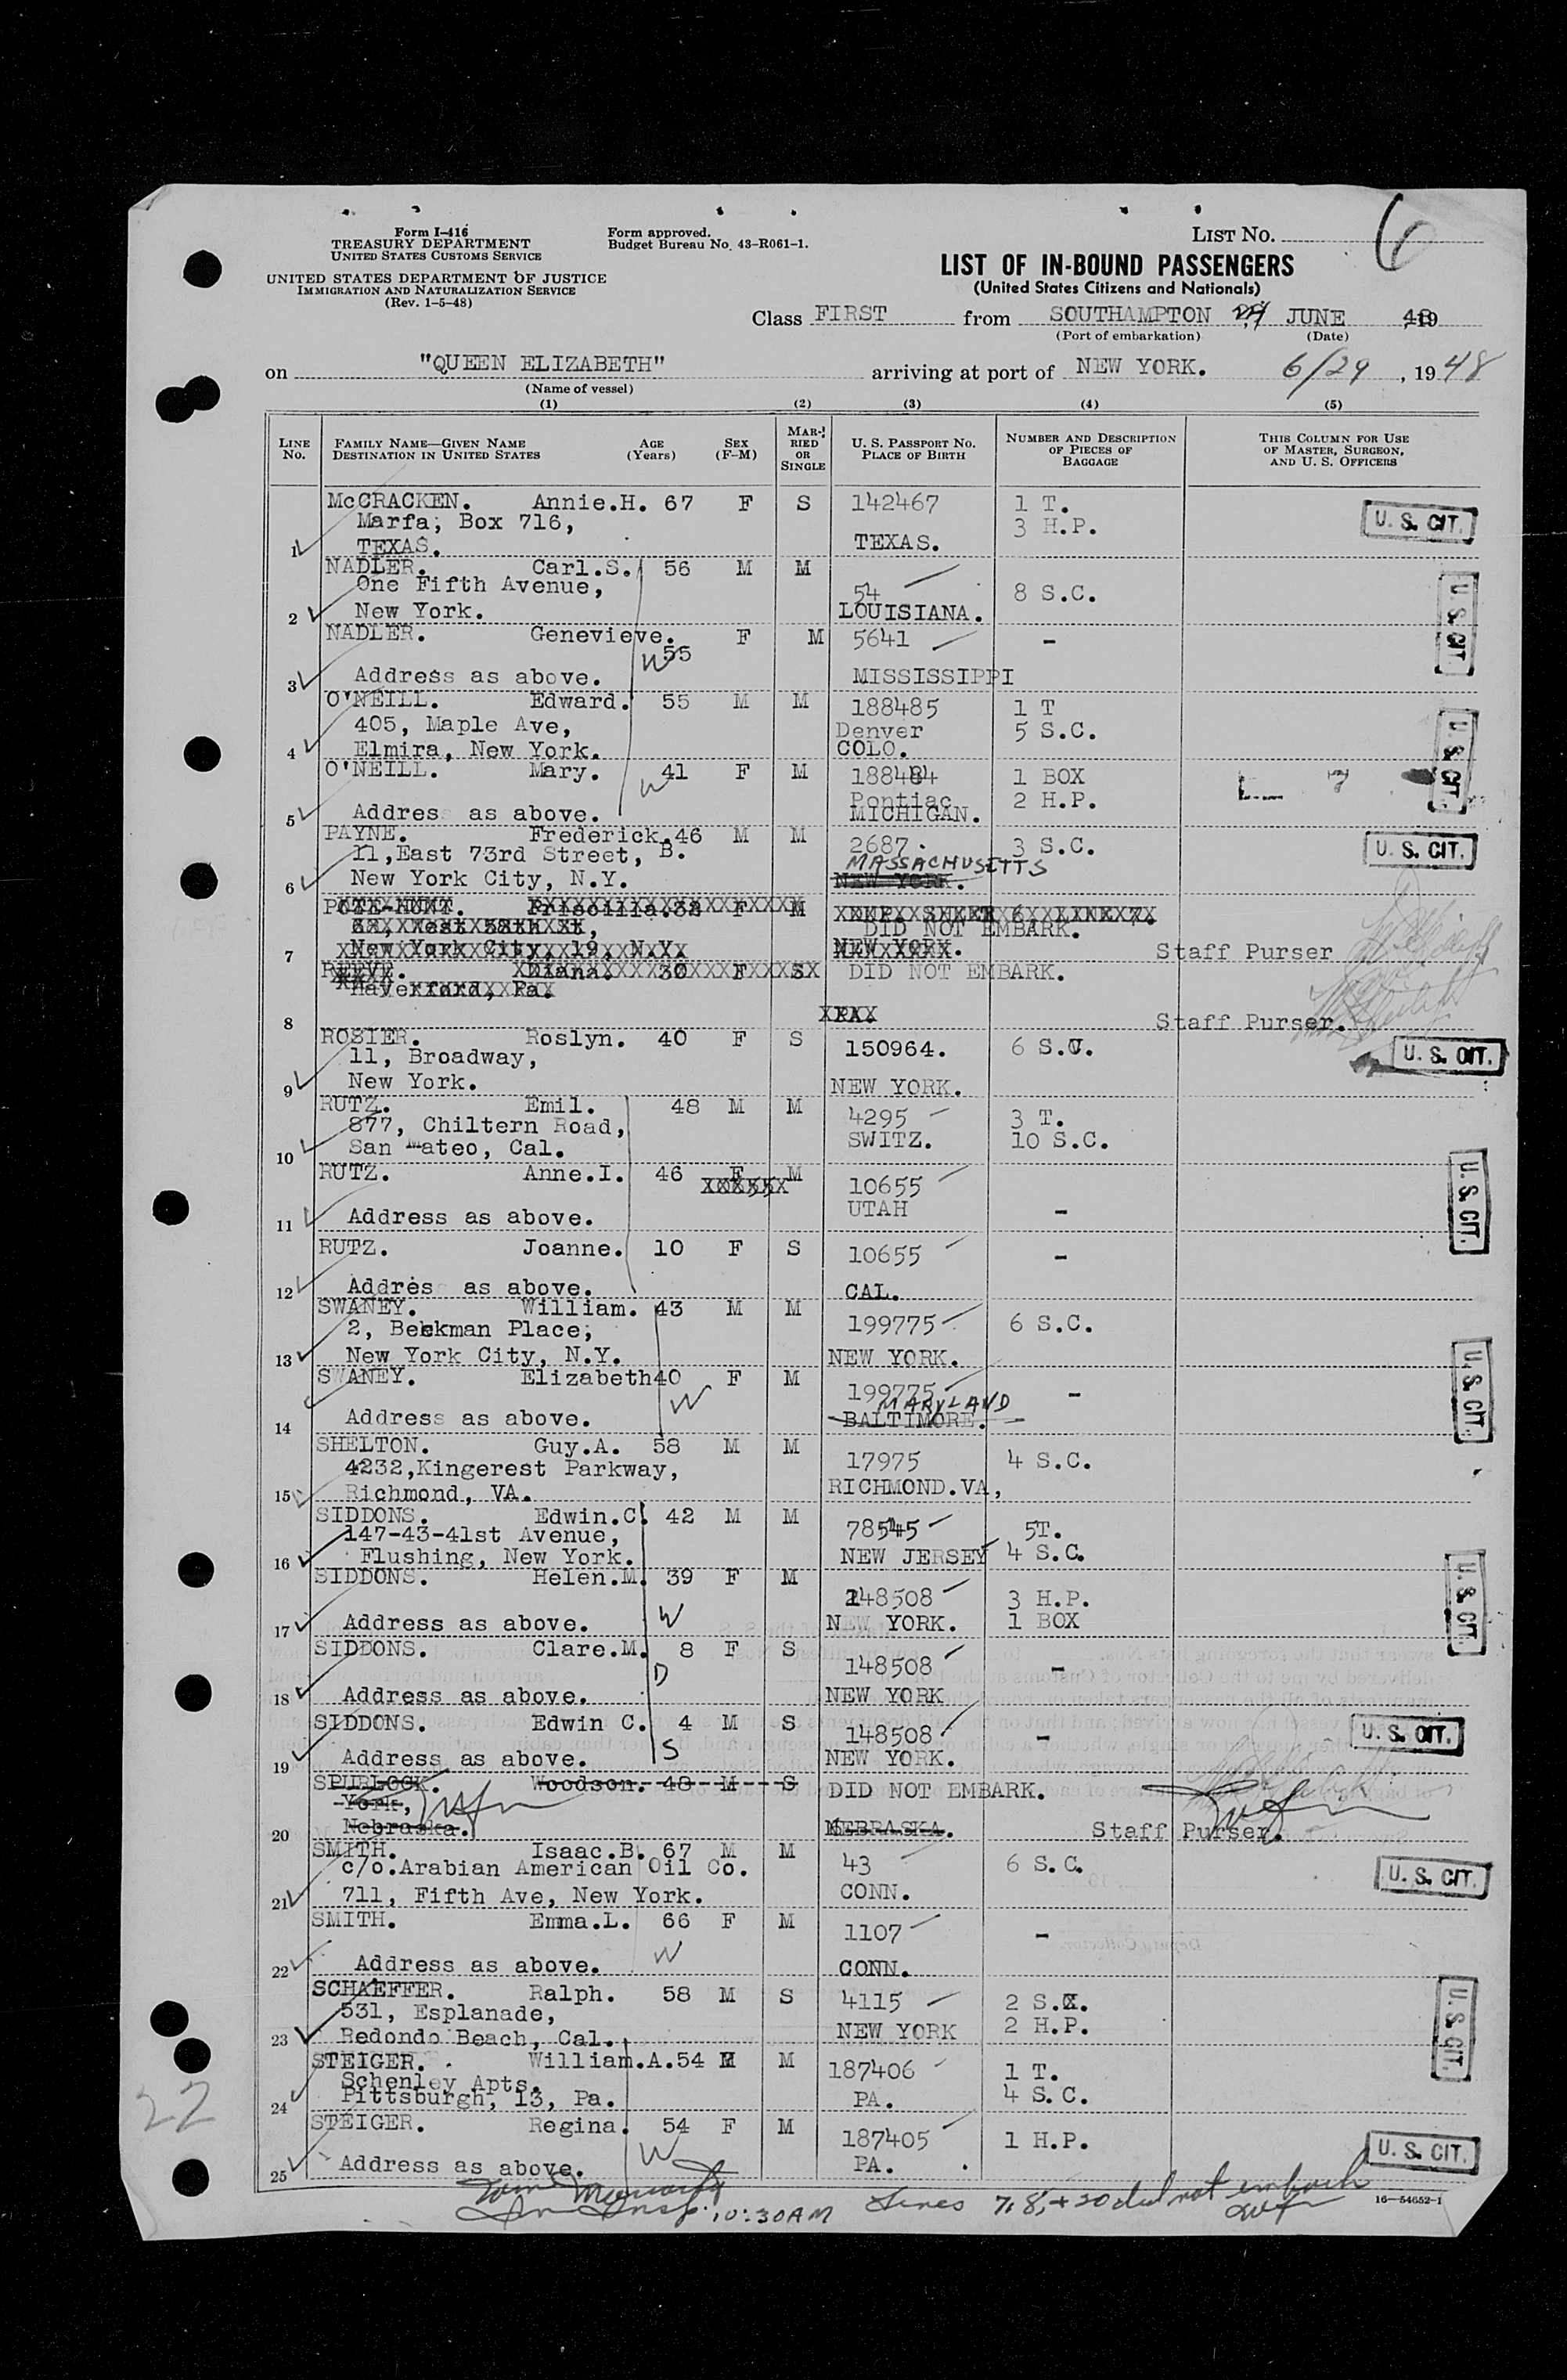 Form I-416
TREASURY DEPARTMENT
UNITED STATES CUSTOMS SERVICE
UNITED STATES DEPARTMENT OF JUSTICE
IMMIGRATION AND NATURALIZATION SERVICE
(Rev. 1-5-48)
Form approved.
Budget Bureau No. 43-R061-1.
LIST NO. 6
LIST OF IN-BOUND PASSENGERS
(United States Citizens and Nationals)
Class FIRST from SOUTHAMPTON JUNE 48
(Port of embarkation) (Date)
on "QUEEN ELIZABETH" arriving at port of NEW YORK. 6/29, 1948
(Name of vessel)
(1) (2) (3) (4) (5)
LINE NO.
FAMILY NAME—GIVEN NAME
DESTINATION IN UNITED STATES
AGE (Years)
SEX (F-M)
MARRIED OR SINGLE
U. S. PASSPORT NO.
PLACE OF BIRTH
NUMBER AND DESCRIPTION OF PIECES OF BAGGAGE
THIS COLUMN FOR USE OF MASTER, SURGEON, AND U. S. OFFICERS
McCRACKEN. Annie.H. 67 F S 142467 1 T.
Marfa, Box 716, 3 H.P. U. S. CIT.
1 TEXAS. TEXAS.
NADLER. Carl.S. 56 M M
One Fifth Avenue, 54 8 S.C.
2 New York. LOUISIANA. U. S. CIT.
NADLER. Genevieve. F M 5641 -
W 55
3 Address as above. MISSISSIPPI
O'NEILL. Edward. 55 M M 188485 1 T
405, Maple Ave, Denver 5 S.C.
4 Elmira, New York. COLO. U. S. CIT.
O'NEILL. Mary. 41 F M 188484 1 BOX
W Pontiac 2 H.P.
5 Addres as above. MICHIGAN.
PAYNE. Frederick.46 M M 2687. 3 S.C.
11,East 73rd Street, B. MASSACHUSETTS U. S. CIT.
6 New York City, N.Y. NEW YORK.
Priscilla. F M
DID NOT EMBARK.
7 New York City, 19, N.Y. NEW YORK. Staff Purser
REEVE. Diana. 30 F S DID NOT EMBARK.
Haverford, Pa.
8 PA. Staff Purser.
ROSIER. Roslyn. 40 F S 150964. 6 S.C.
11, Broadway, U. S. CIT.
9 New York. NEW YORK.
RUTZ. Emil. 48 M M 4295 3 T.
877, Chiltern Road, SWITZ. 10 S.C.
10 San Mateo, Cal.
RUTZ. Anne.I. 46 F M 10655
UTAH U. S. CIT.
11 Address as above. -
RUTZ. Joanne. 10 F S 10655 -
12 Addres as above. CAL.
SWANEY. William. 43 M M 199775 6 S.C.
2, Beekman Place,
13 New York City, N.Y. NEW YORK.
SWANEY. Elizabeth40 F M 199775 - U. S. CIT.
W MARYLAND
14 Address as above. BALTIMORE.
SHELTON. Guy.A. 58 M M 17975 4 S.C.
4232,Kingerest Parkway,
15 Richmond, VA. RICHMOND.VA,
SIDDONS. Edwin.C. 42 M M 78545 5T.
147-43-41st Avenue,
16 Flushing, New York. NEW JERSEY 4 S.C.
SIDDONS. Helen.M. 39 F M 148508 3 H.P. U. S. CIT.
17 Address as above. W NEW YORK. 1 BOX
SIDDONS. Clare.M. 8 F S 148508 -
D
18 Address as above. NEW YORK
SIDDONS. Edwin C. 4 M S 148508 - U. S. CIT.
19 Address as above. S NEW YORK.
SPURLOCK. Woodson. 48 M S DID NOT EMBARK.
York,
20 Nebraska. NEBRASKA. Staff Purser.
SMITH. Isaac.B. 67 M M 43 6 S.C.
c/o.Arabian American Oil Co. U. S. CIT.
21 711, Fifth Ave, New York. CONN.
SMITH. Emma.L. 66 F M 1107 -
W
22 Address as above. CONN.
SCHAEFFER. Ralph. 58 M S 4115 2 S.C.
531, Esplanade, 2 H.P.
23 Redondo Beach, Cal. NEW YORK U. S. CIT.
STEIGER. William.A.54 M M 187406 1 T.
Schenley Apts. 4 S.C.
24 Pittsburgh, 13, Pa. PA.
STEIGER. Regina. 54 F M 187405 1 H.P.
W U. S. CIT.
25 Address as above. PA.
22
10:30AM Lines 7, 8, + 20 did not embark
16—54652-1